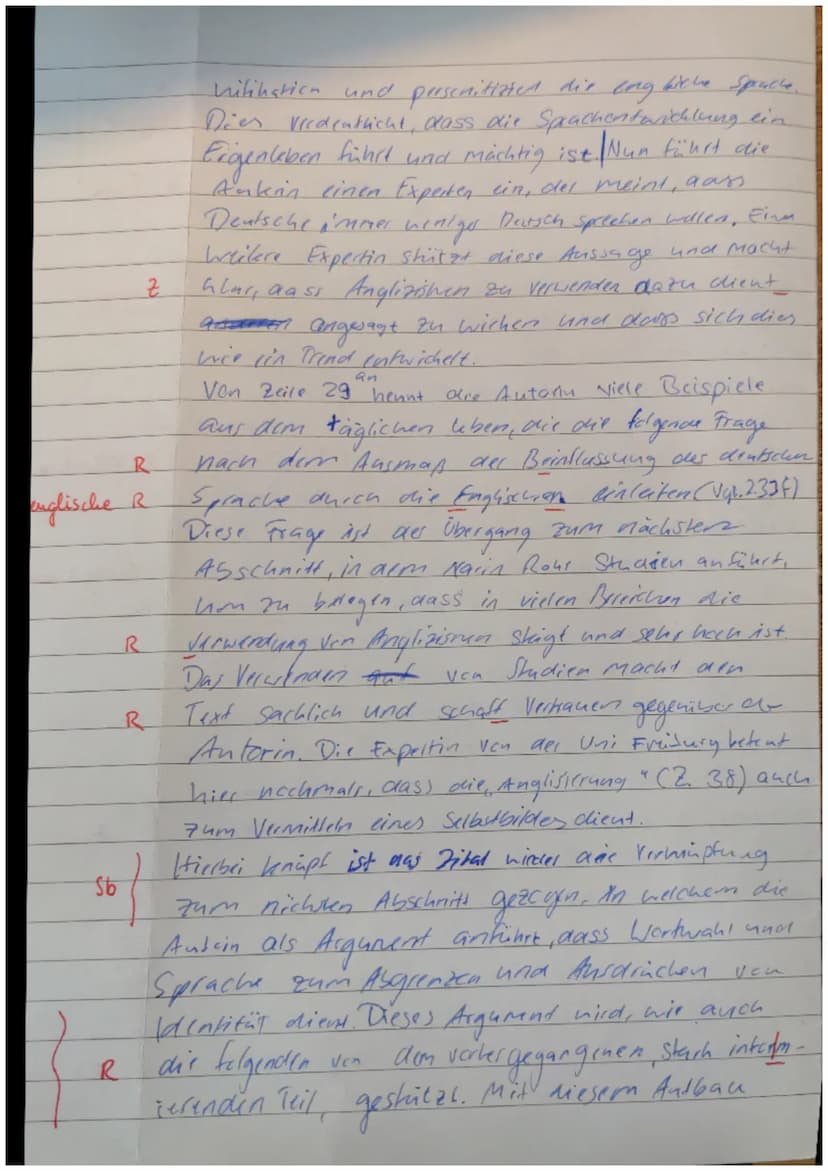 nifikation und personifiziert die englische Sprache.
Dies verdeutlicht, dass die Sprachentwicklung ein
Eigenleben führt und mächtig ist.| Nun führt die
Autorin einen Experten ein, der meint, dass
Deutsche immer weniger Deutsch sprechen wollen. Eine
weitere Expertin stützt diese Aussage und macht
Z klar, dass Anglizismen zu verwenden dazu dient_
angesagt zu wirken und dass sich dies
wie ein Trend entwickelt.
Von Zeile 29 an nennt die Autorin viele Beispiele
aus dem täglichen Leben, die die folgende Frage
R nach dem Ausmaß der Beinflussung der deutschen
englische R Sprache durch die Englischen einleiten (Vgl. Z33f)
Diese Frage ist der Übergang zum nächsten
Abschnitt, in dem Karin Rohr Studien anführt,
um zu belegen, dass in vielen Bereichen die
R verwendung von Anglizismen steigt und sehr hoch ist.
Das Verwenden von Studien macht den
R Text sachlich und schaft Vertrauen gegenüber der
Autorin. Die Expertin von der Uni Freiburg betont
hier nochmals, dass die „Anglisierung" (Z. 38) auch
zum Vermitteln eines Selbstbildes dient.
Hierbei knüpf ist das Zitat wieder eine Verknüpfung
Sb zum nächsten Abschnitt gezogen. In welchem die
Autorin als Argument anführt, dass Wortwahl und
Sprache zum Abgrenzen und Ausdrücken von
Identität dient. Dieses Argument wird, wie auch
R die folgenden von dem vorhergegangenen, stark
ierenden Teil, gestützt. Mit diesem Aufbau